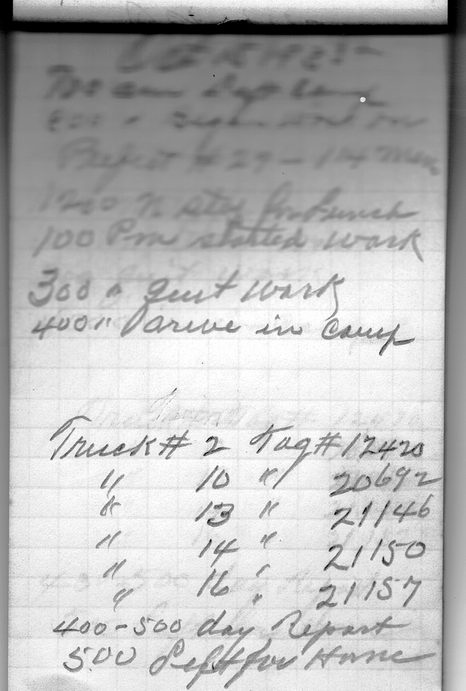 Oct 15 1935
700 am Left Camp
800 " Began Work on
Project # 29 - 114 men
1200 N stop for Lunch
100 Pm started Work
300 " quit Work
400 " arive in Camp
Truck # 2 Tag # 12420
" 10 " 20692
" 13 " 21146
" 14 " 21150
" 16 " 21157
400-500 day Report
500 Left for Home